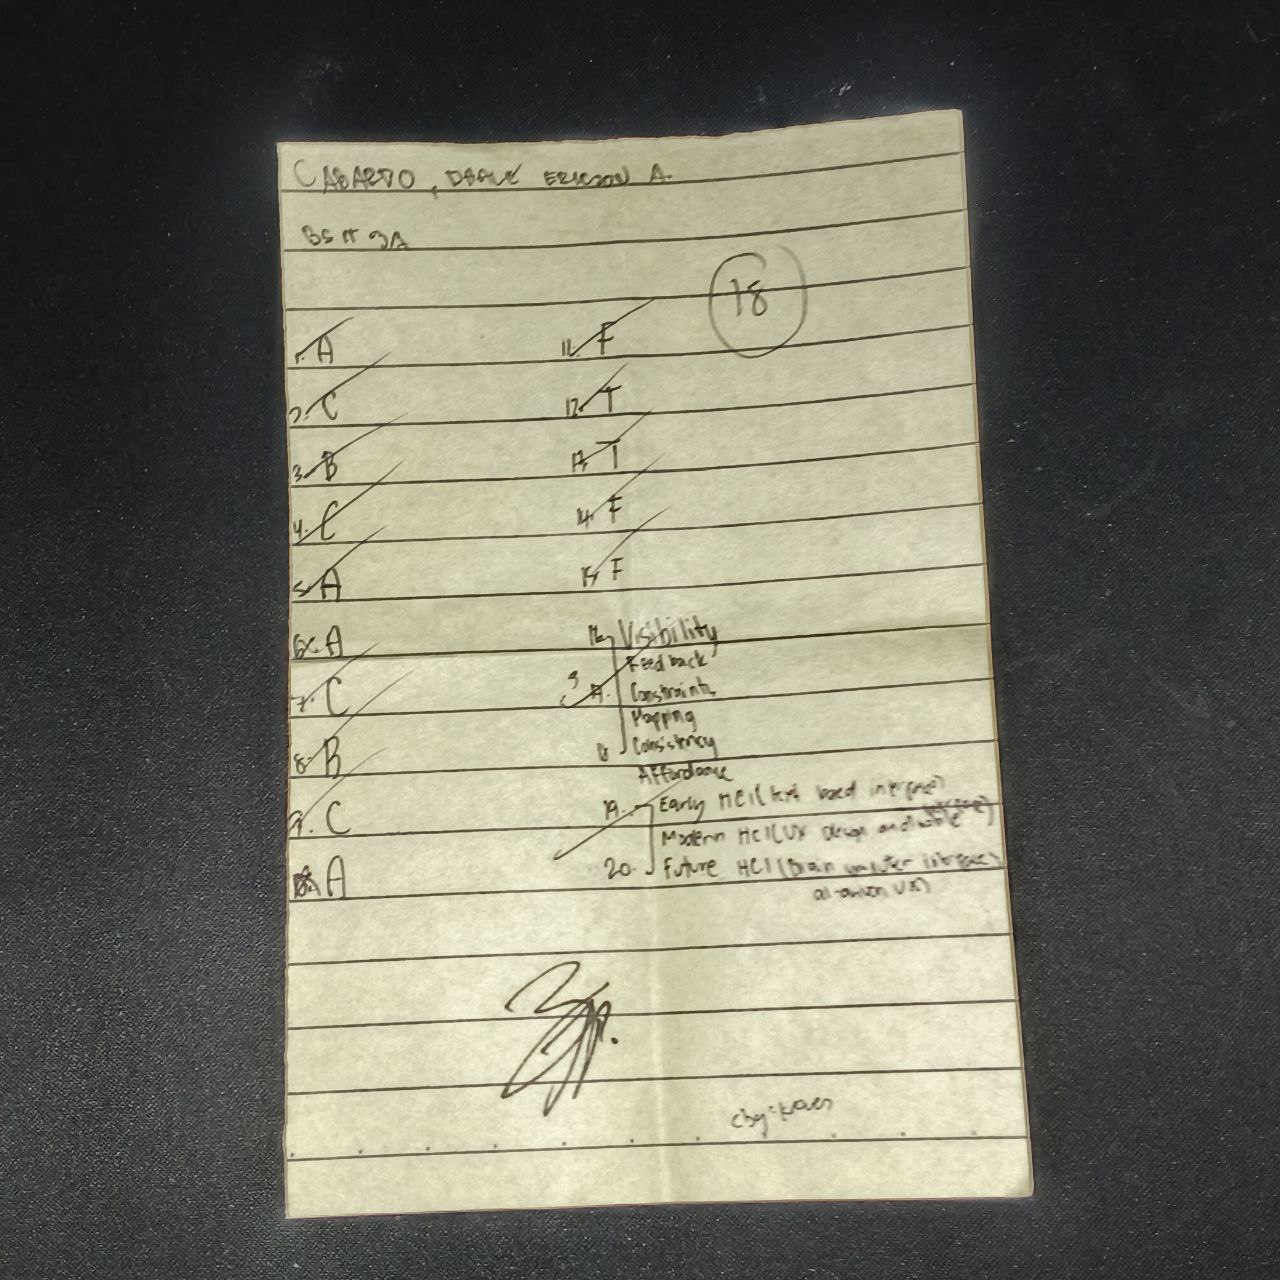 CABARDO, DRAKE ERICSON A.
BSIT 3A
18
1. A
2. C
3. B
4. C
5. A
6. A
7. C
8. B
9. C
10. A
11. F
12. T
13. T
14. F
15. F
16. Visibility
Feedback
3
17. Constraints
Mapping
18 Consistency
Affordance
19. Early HCI (text based interface)
Modern HCI (UX design and mobile interface)
20. Future HCI (Brain computer interfaces
ai-driven UX)